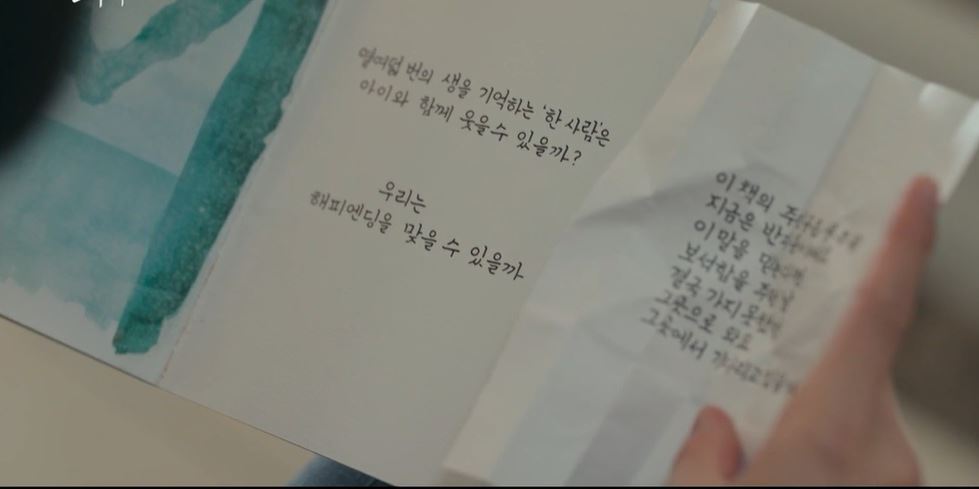 열여덟 번의 생을 기억하는 '한 사람'은
아이와 함께 웃을 수 있을까?
우리는
해피엔딩을 맞을 수 있을까
이 책의
지금은
이 말을
보석함을
결국 가지 못했던
그곳으로 와요
그곳에서